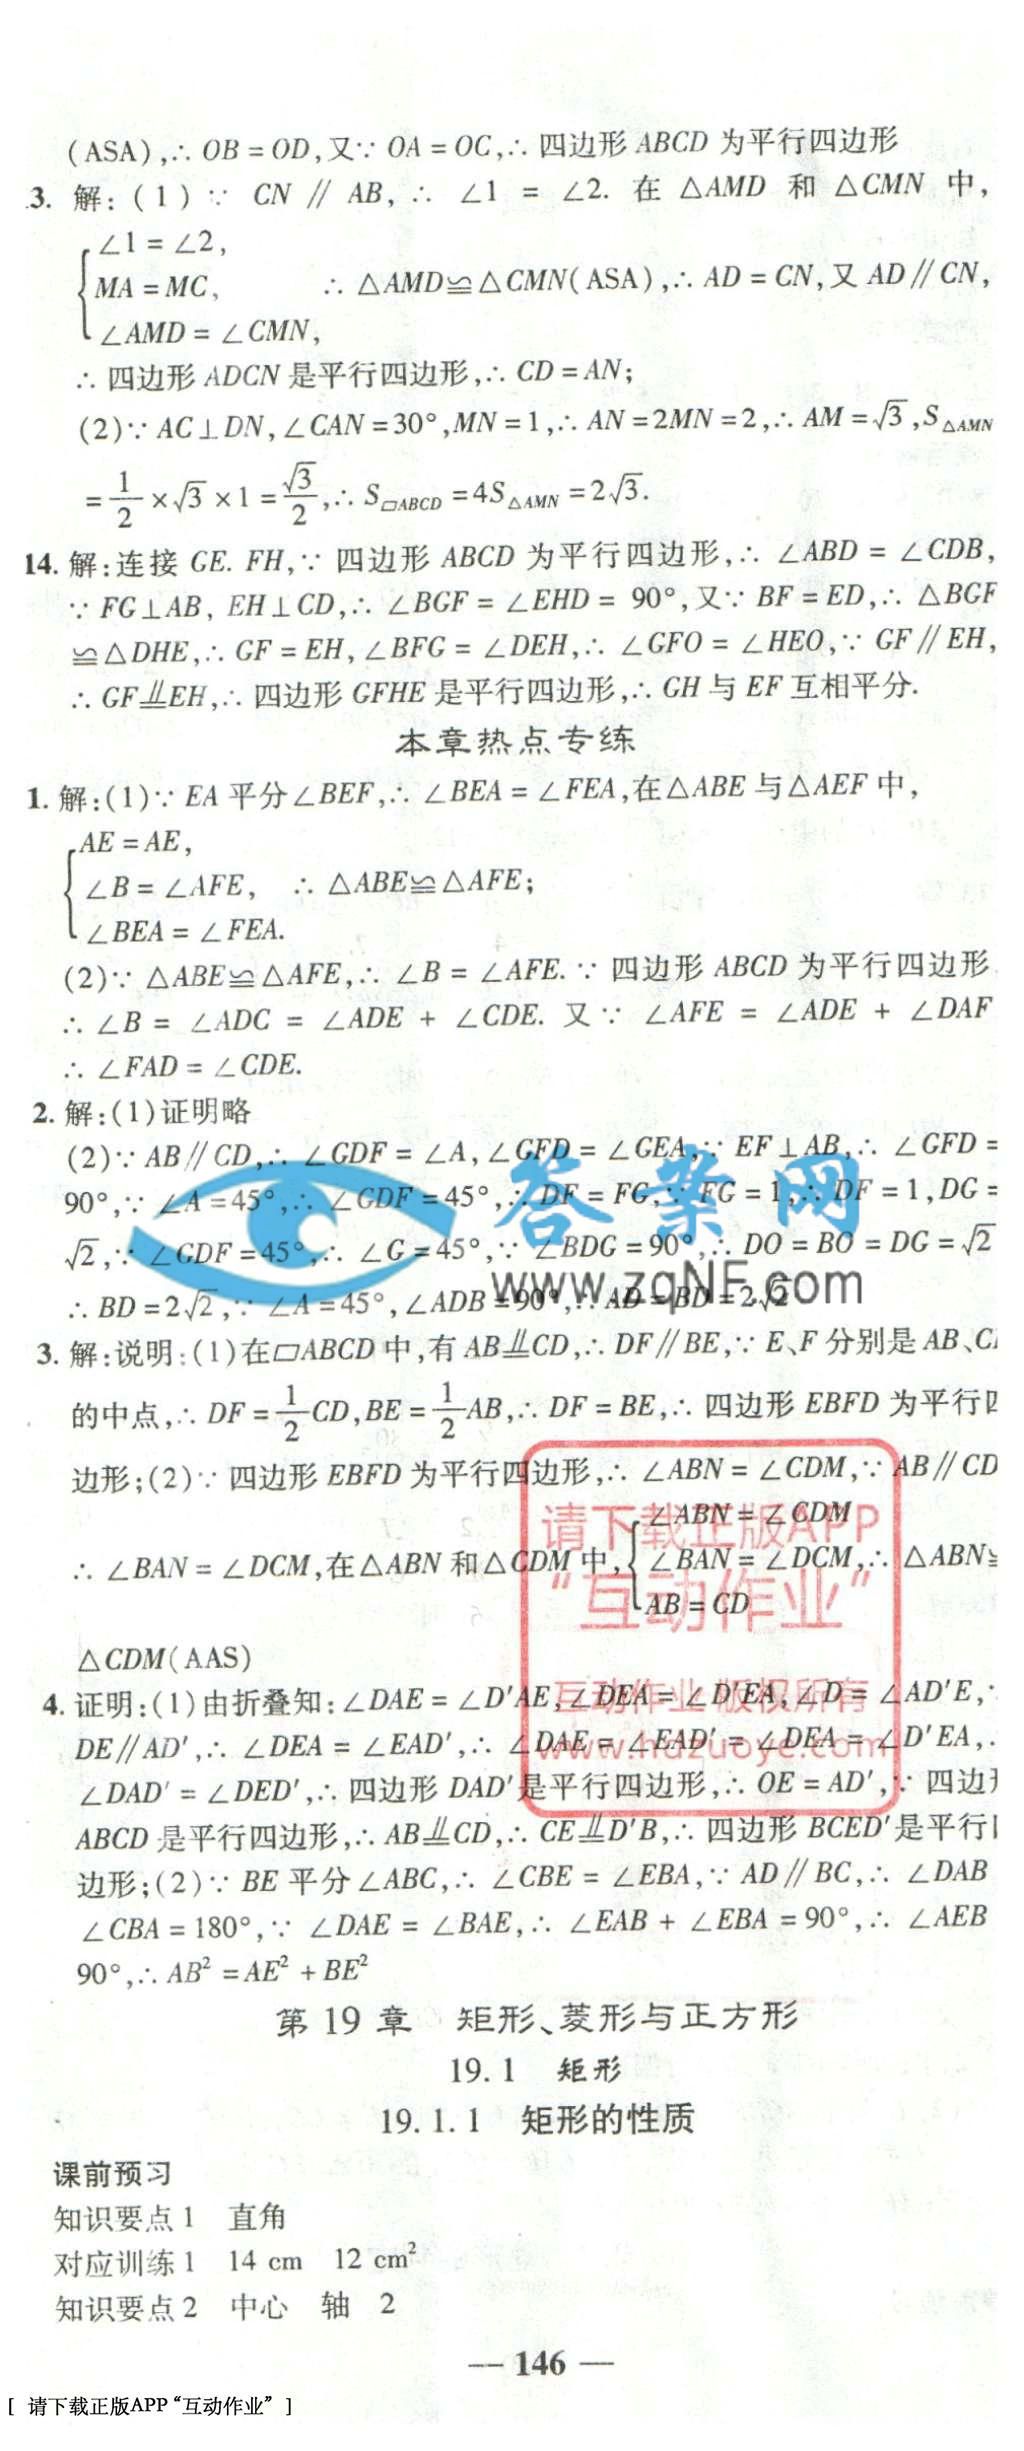 (ASA),∴ OB = OD,又∵ OA = OC,∴ 四边形 ABCD 为平行四边形
3. 解: (1) ∵ CN ∥ AB, ∴ ∠1 = ∠2. 在 △AMD 和 △CMN 中,
∠1 = ∠2,
MA = MC, ∴ △AMD≌△CMN(ASA),∴ AD = CN,又 AD∥CN,
∠AMD = ∠CMN,
∴ 四边形 ADCN 是平行四边形,∴ CD = AN;
(2)∵ AC⊥DN,∠CAN = 30°,MN = 1,∴ AN = 2MN = 2,∴ AM = √3,S△AMN
= 1/2 × √3 × 1 = √3/2,∴ S▱ABCD = 4S△AMN = 2√3.
14. 解:连接 GE. FH,∵ 四边形 ABCD 为平行四边形,∴ ∠ABD = ∠CDB,
∵ FG⊥AB, EH⊥CD,∴ ∠BGF = ∠EHD = 90°,又∵ BF = ED,∴ △BGF
≌△DHE,∴ GF = EH,∠BFG = ∠DEH,∴ ∠GFO = ∠HEO,∵ GF∥EH,
∴ GF⫫EH,∴ 四边形 GFHE 是平行四边形,∴ GH 与 EF 互相平分.
本章热点专练
1. 解:(1)∵ EA 平分∠BEF,∴ ∠BEA = ∠FEA,在△ABE 与△AEF 中,
AE = AE,
∠B = ∠AFE, ∴ △ABE≌△AFE;
∠BEA = ∠FEA.
(2)∵ △ABE≌△AFE,∴ ∠B = ∠AFE. ∵ 四边形 ABCD 为平行四边形
∴ ∠B = ∠ADC = ∠ADE + ∠CDE. 又∵ ∠AFE = ∠ADE + ∠DAF
∴ ∠FAD = ∠CDE.
2. 解:(1)证明略
(2)∵ AB∥CD,∴ ∠GDF = ∠A,∠GFD = ∠GEA,∵ EF⊥AB,∴ ∠GFD =
90°,∵ ∠A = 45°,∴ ∠GDF = 45°,∴ DF = FG,∵ FG = 1,∴ DF = 1,DG =
√2,∵ ∠GDF = 45°,∴ ∠G = 45°,∵ ∠BDG = 90°,∴ DO = BO = DG = √2
∴ BD = 2√2,∵ ∠A = 45°,∠ADB = 90°,∴ AD = BD = 2√2
答案网
www.zqNF.com
3. 解:说明:(1)在▱ABCD 中,有 AB⫫CD,∴ DF∥BE,∵ E、F 分别是 AB、C
的中点,∴ DF = 1/2 CD,BE = 1/2 AB,∴ DF = BE,∴ 四边形 EBFD 为平行四
边形;(2)∵ 四边形 EBFD 为平行四边形,∴ ∠ABN = ∠CDM,∵ AB∥CD
∠ABN = ∠CDM
∴ ∠BAN = ∠DCM,在△ABN 和△CDM 中, ∠BAN = ∠DCM,∴ △ABN≌
AB = CD
△CDM(AAS)
请下载正版APP
“互动作业”
互动作业 版权所有
www.hdzuoye.com
4. 证明:(1)由折叠知:∠DAE = ∠D′AE,∠DEA = ∠D′EA,∠D = ∠AD′E,∵
DE∥AD′,∴ ∠DEA = ∠EAD′,∴ ∠DAE = ∠EAD′ = ∠DEA = ∠D′EA,∴
∠DAD′ = ∠DED′,∴ 四边形 DAD′是平行四边形,∴ OE = AD′,∵ 四边形
ABCD 是平行四边形,∴ AB⫫CD,∴ CE⫫D′B,∴ 四边形 BCED′是平行四
边形;(2)∵ BE 平分∠ABC,∴ ∠CBE = ∠EBA,∵ AD∥BC,∴ ∠DAB
∠CBA = 180°,∵ ∠DAE = ∠BAE,∴ ∠EAB + ∠EBA = 90°,∴ ∠AEB
90°,∴ AB² = AE² + BE²
第 19 章 矩形、菱形与正方形
19. 1 矩形
19. 1. 1 矩形的性质
课前预习
知识要点 1 直角
对应训练 1 14 cm 12 cm²
知识要点 2 中心 轴 2
— 146 —
[ 请下载正版APP“互动作业” ]